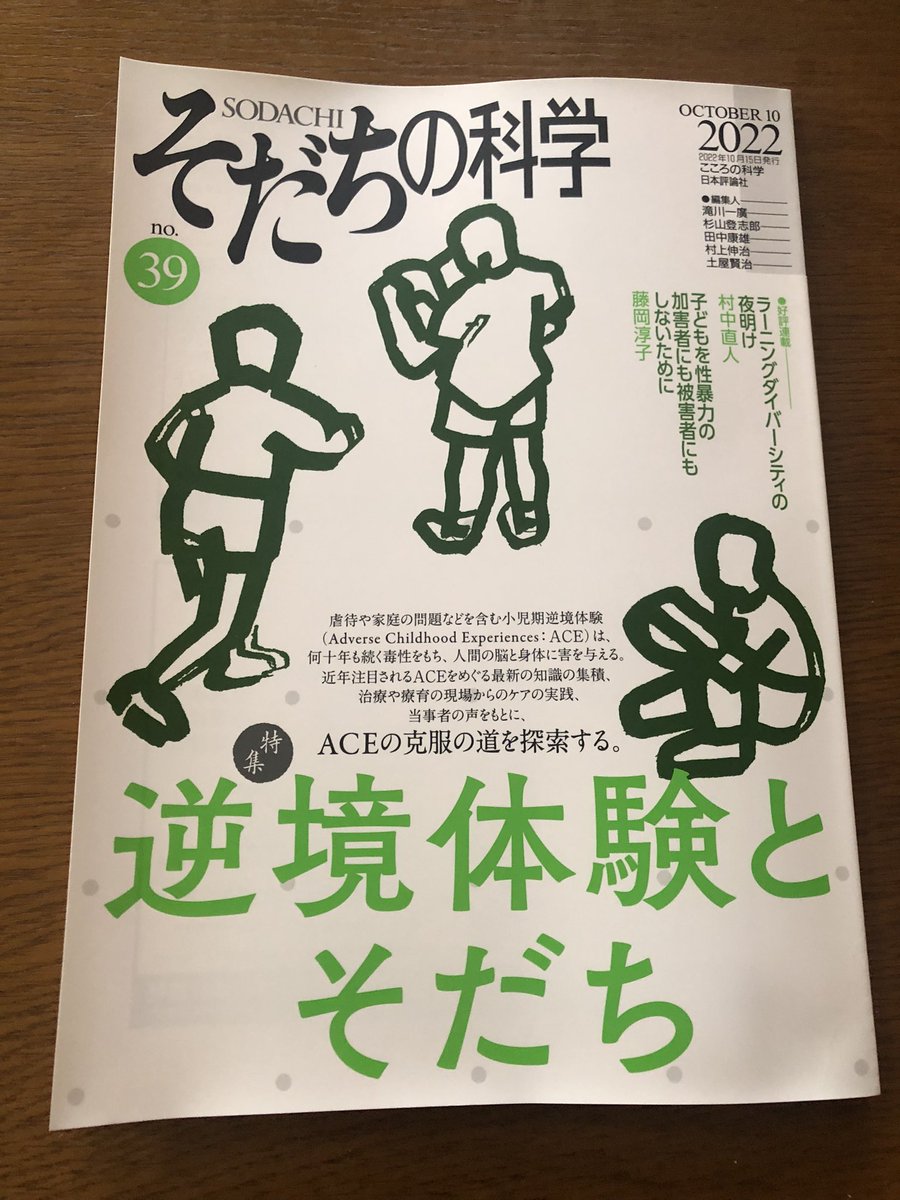 SODACHI
そだちの科学
no.
39
OCTOBER 10
2022
2022年10月15日発行
こころの科学
日本評論社
●編集人
滝川一廣
杉山登志郎
田中康雄
村上伸治
土屋賢治
●好評連載
ラーニングダイバーシティの
夜明け
村中直人
子どもを性暴力の
加害者にも被害者にも
しないために
藤岡淳子
虐待や家庭の問題などを含む小児期逆境体験
(Adverse Childhood Experiences：ACE)は、
何十年も続く毒性をもち、人間の脳と身体に害を与える。
近年注目されるACEをめぐる最新の知識の集積、
治療や療育の現場からのケアの実践、
当事者の声をもとに、
ACEの克服の道を探索する。
特集
逆境体験と
そだち